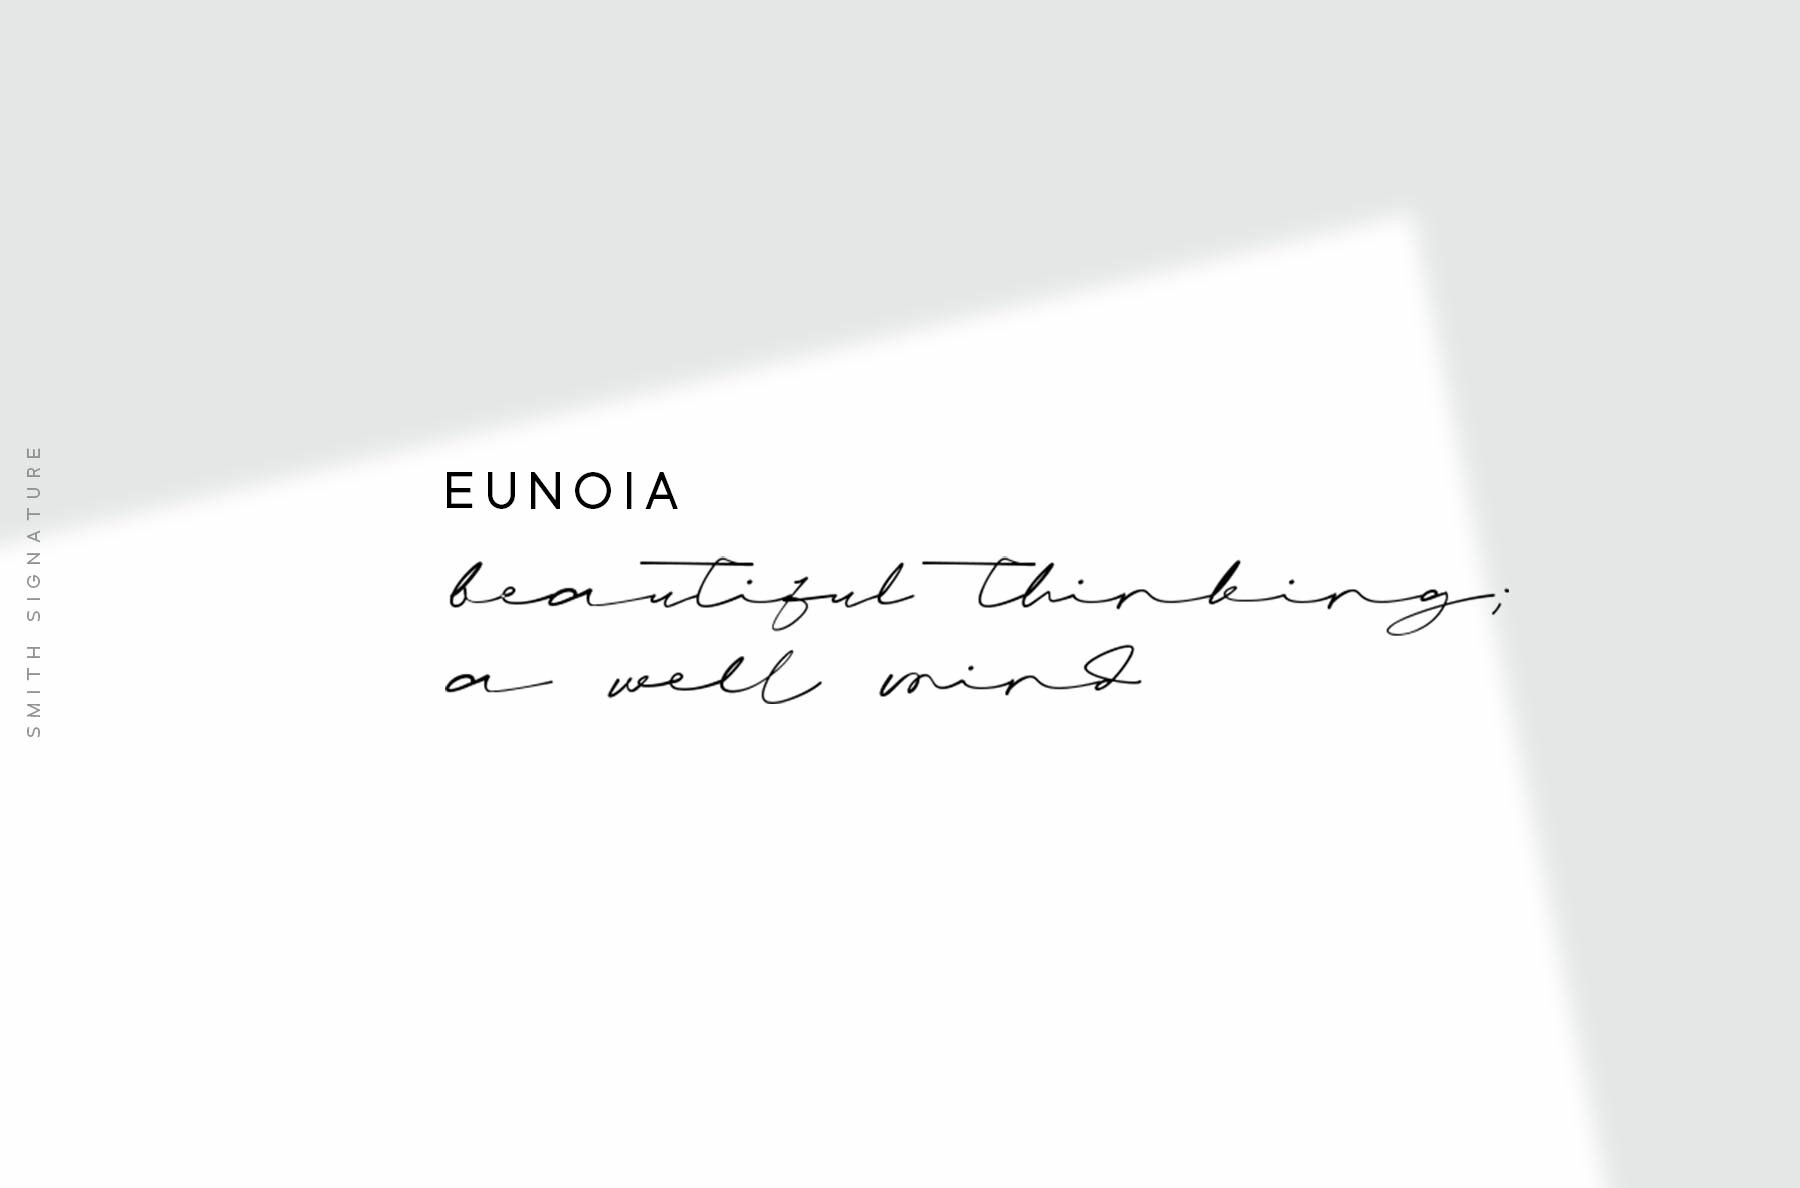 SMITH SIGNATURE
EUNOIA
beautiful thinking;
a well mind